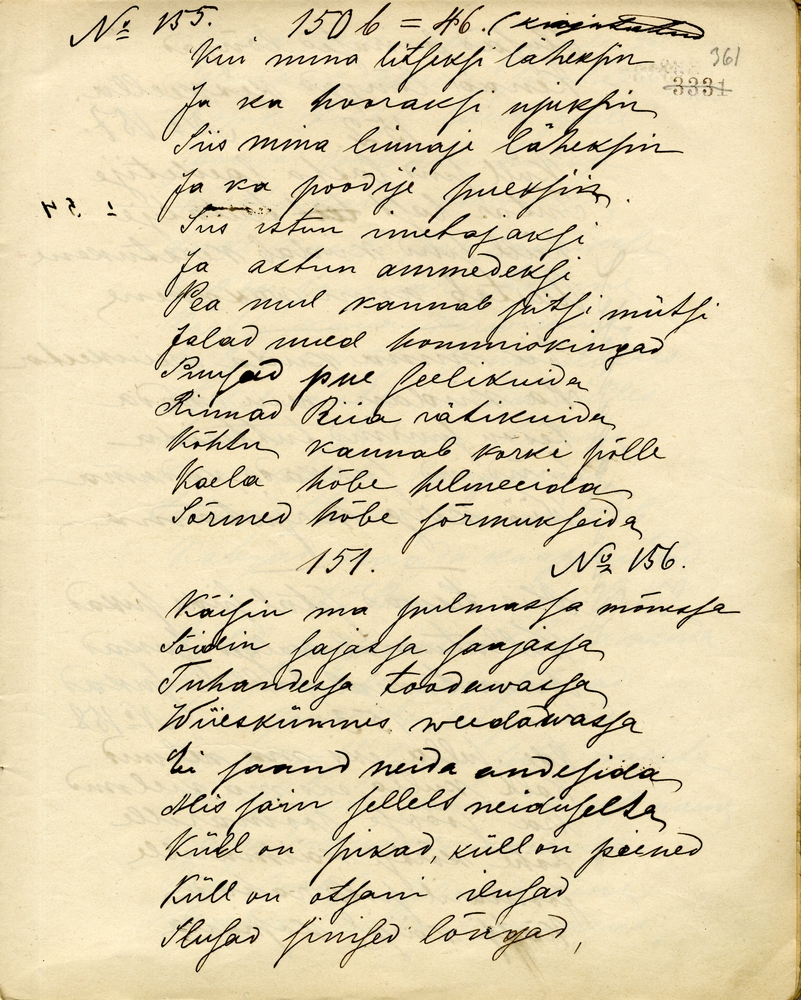 № 155. 150 b = 46.
361
Kui mina litseksi läheksin
3331
Ja ka hooraksi ujuksin
Siis mina linnaje läheksin
Ja ka poodije pueksin.
Siis istun imetajaksi
Ja astun ammedeksi
Pea mul kannab sitsi mütsi
Jalad mued hommiskingad
Puusad pue seelikuida
Rinnad Riia rätikuida
Kõhtu kannab korki põlle
Kaela hõbe helmeeida
Sõrmed hõbe sõrmukseida
151. № 156.
Käisin ma pulmassa mõnessa
Sõidin sajassa saajassa
Tuhandessa toodawassa
Wiieskümnes weedawassa
Ei saand neida andesida
Mis sain sellelt neiduselta
Küll on pikad, küll on peened
Küll on otsani ilusad
Ilusad sinised lõngad,